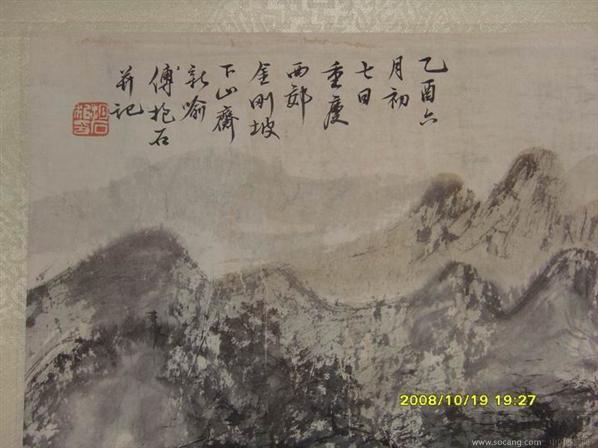 乙酉六
月初
七日
重庆
西郊
金刚坡
下山斋
新喻
傅抱石
并记
抱石
2008/10/19 19:27
www.socang.com